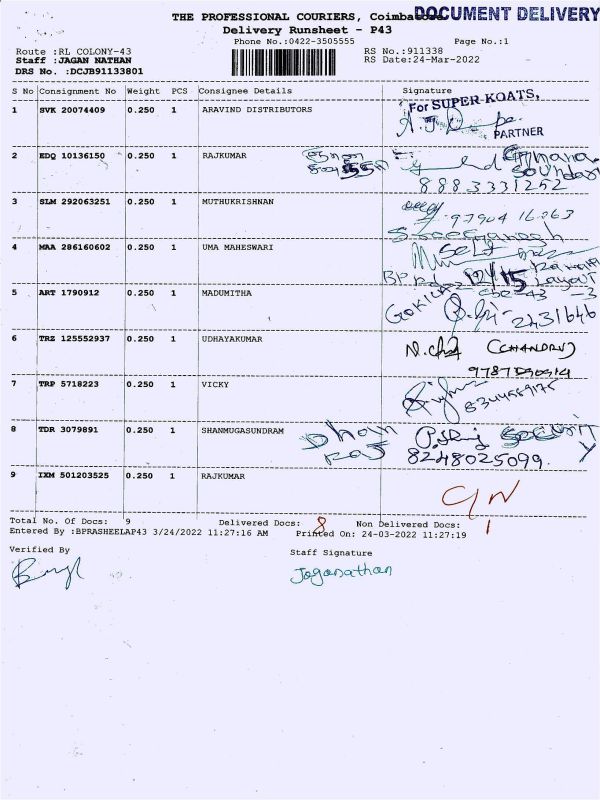 DOCUMENT DELIVERY
THE PROFESSIONAL COURIERS, Coimbatore
Delivery Runsheet - P43
Phone No.:0422-3505555 Page No.:1
Route :RL COLONY-43 RS No.:911338
Staff :JAGAN NATHAN RS Date:24-Mar-2022
DRS No. :DCJB91133801
S No Consignment No Weight PCS Consignee Details Signature
1 SVK 20074409 0.250 1 ARAVIND DISTRIBUTORS
For SUPER KOATS,
PARTNER
2 EDQ 10136150 0.250 1 RAJKUMAR
8883331252
3 SLM 292063251 0.250 1 MUTHUKRISHNAN
97904 16063
4 MAA 286160602 0.250 1 UMA MAHESWARI
Self
5 ART 1790912 0.250 1 MADUMITHA
GOKILA 2431646
6 TRZ 125552937 0.250 1 UDHAYAKUMAR
(CHANDRU)
7 TRP 5718223 0.250 1 VICKY
8 TDR 3079891 0.250 1 SHANMUGASUNDRAM
Dhan Raj Security
8248025099.
9 IXM 501203525 0.250 1 RAJKUMAR
Total No. Of Docs: 9 Delivered Docs: 8 Non Delivered Docs: 1
Entered By :BPRASHEELAP43 3/24/2022 11:27:16 AM Printed On: 24-03-2022 11:27:19
Verified By Staff Signature
Joganathan